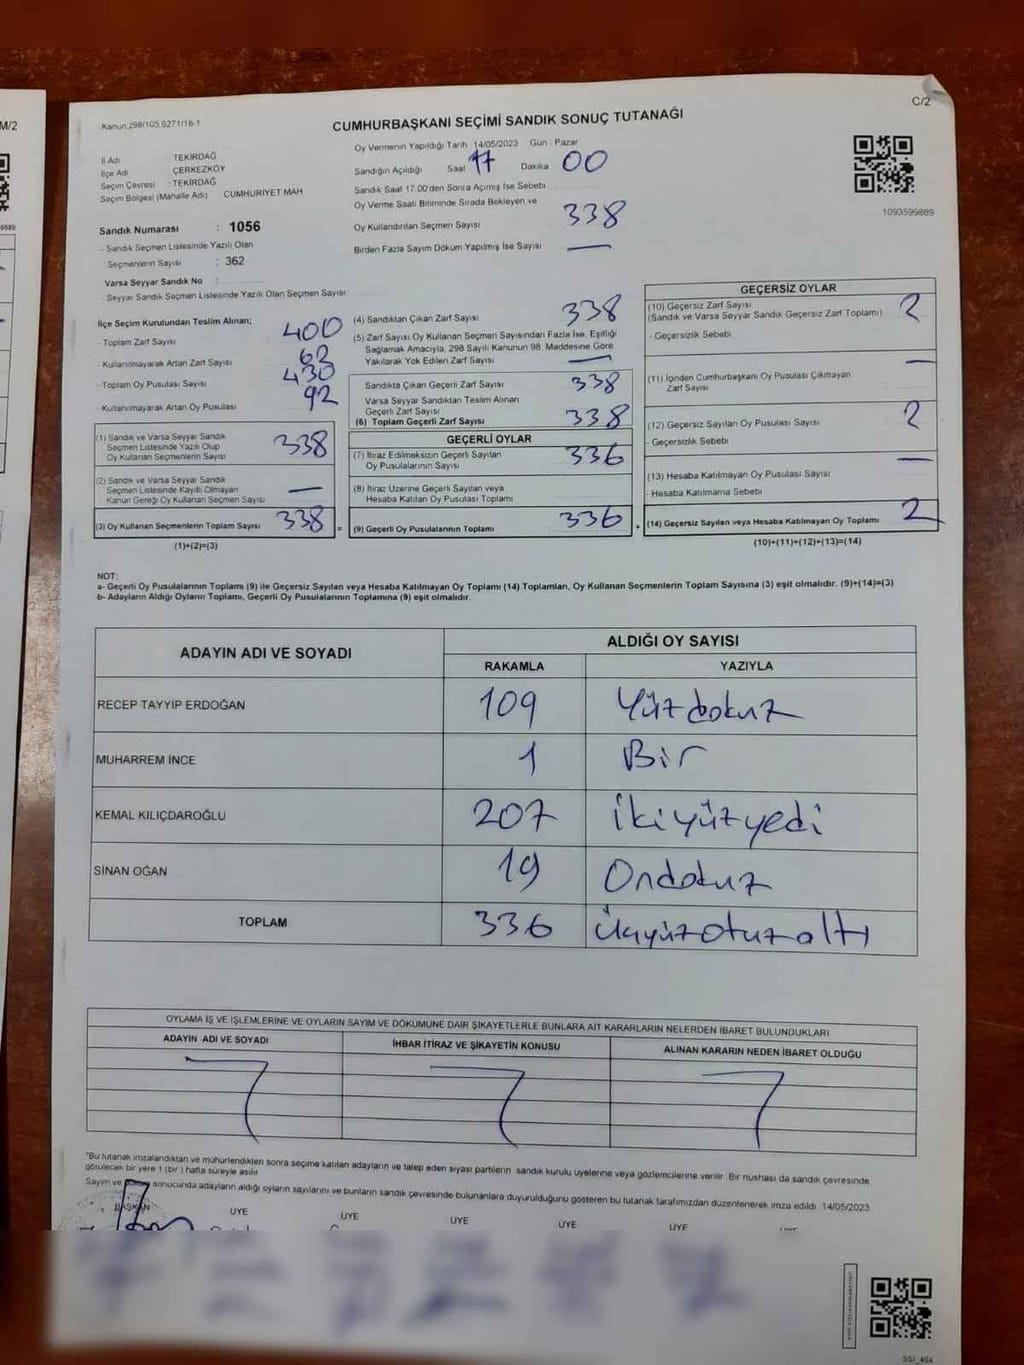 C/2
Kanun:298/105,6271/18-1
CUMHURBAŞKANI SEÇİMİ SANDIK SONUÇ TUTANAĞI
İl Adı TEKİRDAĞ
İlçe Adı ÇERKEZKÖY
Seçim Çevresi : TEKİRDAĞ
Seçim Bölgesi (Mahalle Adı) : CUMHURİYET MAH
Oy Vermenin Yapıldığı Tarih 14/05/2023 Gün : Pazar
Sandığın Açıldığı Saat 17 Dakika 00
Sandık Saat 17:00'den Sonra Açılmış İse Sebebi
Oy Verme Saati Bitiminde Sırada Bekleyen ve
Oy Kullandırılan Seçmen Sayısı 338
Birden Fazla Sayım Döküm Yapılmış İse Sayısı —
1093599889
Sandık Numarası : 1056
- Sandık Seçmen Listesinde Yazılı Olan
Seçmenlerin Sayısı : 362
Varsa Seyyar Sandık No :
- Seyyar Sandık Seçmen Listesinde Yazılı Olan Seçmen Sayısı
İlçe Seçim Kurulundan Teslim Alınan;
- Toplam Zarf Sayısı 400
- Kullanılmayarak Artan Zarf Sayısı 62
- Toplam Oy Pusulası Sayısı 430
- Kullanılmayarak Artan Oy Pusulası 92
(1) Sandık ve Varsa Seyyar Sandık
Seçmen Listesinde Yazılı Olup
Oy Kullanan Seçmenlerin Sayısı 338
(2) Sandık ve Varsa Seyyar Sandık
Seçmen Listesinde Kayıtlı Olmayan
Kanun Gereği Oy Kullanan Seçmen Sayısı —
(3) Oy Kullanan Seçmenlerin Toplam Sayısı 338 =
(1)+(2)=(3)
(4) Sandıktan Çıkan Zarf Sayısı 338
(5) Zarf Sayısı Oy Kullanan Seçmen Sayısından Fazla İse, Eşitliği
Sağlamak Amacıyla, 298 Sayılı Kanunun 98. Maddesine Göre
Yakılarak Yok Edilen Zarf Sayısı —
Sandıkta Çıkan Geçerli Zarf Sayısı 338
Varsa Seyyar Sandıktan Teslim Alınan
Geçerli Zarf Sayısı
(6) Toplam Geçerli Zarf Sayısı 338
GEÇERLİ OYLAR
(7) İtiraz Edilmeksizin Geçerli Sayılan
Oy Pusulalarının Sayısı 336
(8) İtiraz Üzerine Geçerli Sayılan veya
Hesaba Katılan Oy Pusulası Toplamı
(9) Geçerli Oy Pusulalarının Toplamı 336 +
GEÇERSİZ OYLAR
(10) Geçersiz Zarf Sayısı 2
(Sandık ve Varsa Seyyar Sandık Geçersiz Zarf Toplamı)
- Geçersizlik Sebebi —
(11) İçinden Cumhurbaşkanı Oy Pusulası Çıkmayan
Zarf Sayısı
(12) Geçersiz Sayılan Oy Pusulası Sayısı 2
- Geçersizlik Sebebi —
(13) Hesaba Katılmayan Oy Pusulası Sayısı
- Hesaba Katılmama Sebebi
(14) Geçersiz Sayılan veya Hesaba Katılmayan Oy Toplamı 2
(10)+(11)+(12)+(13)=(14)
NOT:
a- Geçerli Oy Pusulalarının Toplamı (9) ile Geçersiz Sayılan veya Hesaba Katılmayan Oy Toplamı (14) Toplamları, Oy Kullanan Seçmenlerin Toplam Sayısına (3) eşit olmalıdır. (9)+(14)=(3)
b- Adayların Aldığı Oyların Toplamı, Geçerli Oy Pusulalarının Toplamına (9) eşit olmalıdır.
ADAYIN ADI VE SOYADI ALDIĞI OY SAYISI
RAKAMLA YAZIYLA
RECEP TAYYİP ERDOĞAN 109 Yüzdokuz
MUHARREM İNCE 1 Bir
KEMAL KILIÇDAROĞLU 207 İkiyüzyedi
SİNAN OĞAN 19 Ondokuz
TOPLAM 336 Üçyüzotuzaltı
OYLAMA İŞ VE İŞLEMLERİNE VE OYLARIN SAYIM VE DÖKÜMÜNE DAİR ŞİKAYETLERLE BUNLARA AİT KARARLARIN NELERDEN İBARET BULUNDUKLARI
ADAYIN ADI VE SOYADI İHBAR İTİRAZ VE ŞİKAYETİN KONUSU ALINAN KARARIN NEDEN İBARET OLDUĞU
"Bu tutanak imzalandıktan ve mühürlendikten sonra seçime katılan adayların ve talep eden siyasi partilerin sandık kurulu üyelerine veya gözlemcilerine verilir. Bir nüshası da sandık çevresinde
görülecek bir yere 1 (bir) hafta süreyle asılır.
Sayım ve döküm sonucunda adayların aldığı oyların sayılarını ve bunların sandık çevresinde bulunanlara duyurulduğunu gösteren bu tutanak tarafımızdan düzenlenerek imza edildi. 14/05/2023
BAŞKAN ÜYE ÜYE ÜYE ÜYE ÜYE
M/2